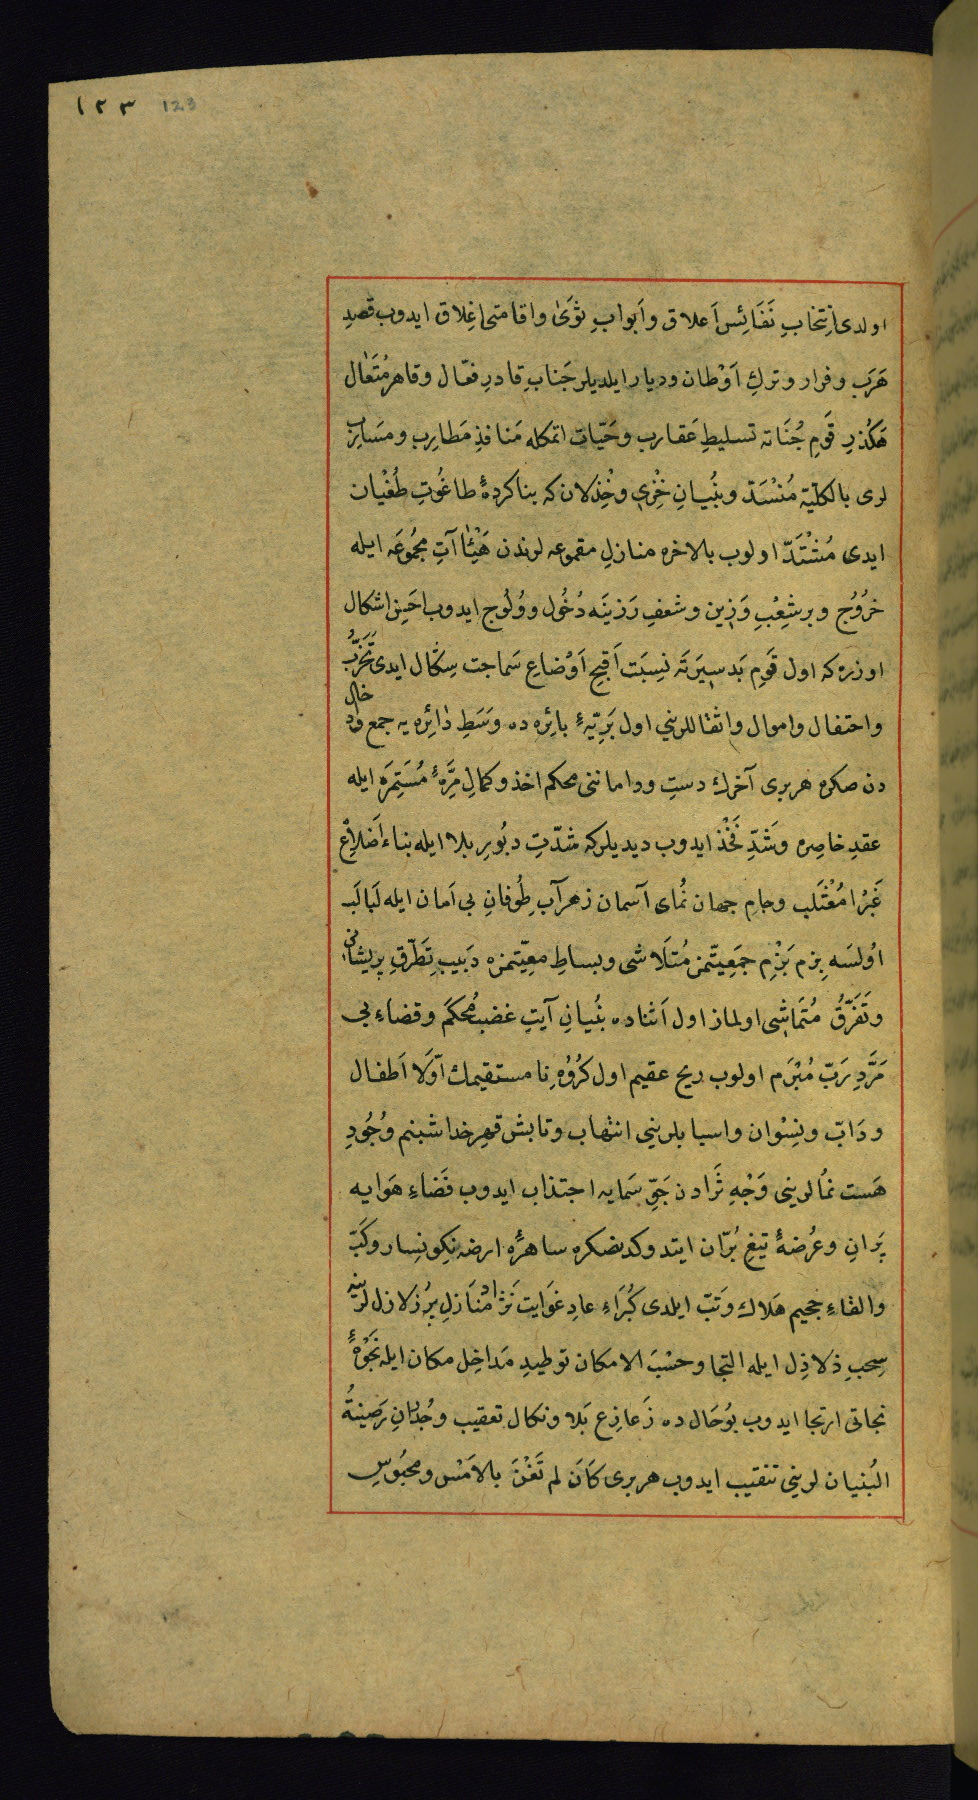 ١٢٣ 123
اولدی اِنتِخابِ نَفَائِسِ اَعلاق واَبوابِ ثَوَیٰ واقامتی اِغِلاق ایدوب قصدِ
هَرَب وفرار وترکِ اَوْطان ودیار ایلدیلر جَنابِ قادرِ فعّال وقاهرِ مُتَعال
قَومِ جُنَاتہ تسلیطِ عَقارب وحَیّات اتمکله مَنافذِ مَطارِب ومسَارِب
لری بالکلّیّه مُنْسَدّ وبُنْیانِ خِزْی وخِذلان که بناکردهٔ طاغُوتِ طُغْیان
ایدی مُشْتَدّ اولوب بالاخره منازلِ مقموعه لرندن هَیْئآتِ مجمُوعَه ایله
خرُوُج وبر شِعْبِ وَزین وشعفِ رَزینَه دُخُول ووُلُوج ایدوب اشکال
اوزره که اول قَومِ بَدسِیرَتَه نِسِبَت اَقبحِ اَوْضاعِ سَماجت سِکٰال ایدی تَحَزُّب
واحتفال واموال واثقاللرینی اول بَرِّیّهٔ بائِره ده وسَطِ دٰائِره یه جمع واد
خال
دن صکره هربری آخرك دستِ ودامانی محکم اخذ وکمالِ مِرَّهٔ مُسْتَمِرَه ایله
عقدِ خاصِره وشَدِّ فَخْذ ایدوب دیدیلرکه شدّتِ دبُورِ بلا ایله بناء اَضلاعِ
غَبْرا وجامِ جهان نُمای آسمان زهرآبِ طُوفانِ بی اَمان ایله لَبالَب
اوُلسَه بزم بَزْمِ جمَعِیّتمز مُتلَاشی وبساطِ معِیّتمزه دَبیبِ تَطَرّقِ پریشانی
وتَفَرّقُ مُتَماشی اولماز اول اَثناده بُنیانِ آیتِ غضب مُحکَم وقضاءِ بی
مَرَّدِ رَبّ مُبْرَم اولوب ریحِ عقیم اول کرُوُهِ نامستقیمك اوّلا اَطفال
ودَابّ ونِسْوان واسبابلرینی انتهاب وتابش قهرِ خدا شبنم وُجُودِ
هَست نمُالرینی وَجْهِ ثَرَادن جَوِّ سَمایه اجتذاب ایدوب فَضاءِ هَوایه
پَرانِ وعُرضهٔ تیغِ بُرّان ایتدوکدنصکره ساهرهٔ ارضه نِکونسار وکَبّ
والقاءِ جحیم هَلاك وتَبّ ایلدی کُبَرَاءِ عادِ غَوایت نَژاد مَنازلِ پرُ زلازل لرینه
ذلاذِل ایله التجا وحسْبَ الامکان توطیدِ مَداخِل مکان ایله نَجَوْهٔ
نجاتی ارتجا ایدوب بوُحَال ده زَعازِع بَلا ونکال تعقیب وجُدرانِ رَصَینةُ
البُنیان لرینی تنقیب ایدوب هربری کَانَ لم تَغْنَ بالاَمْس ومحبُوسِ